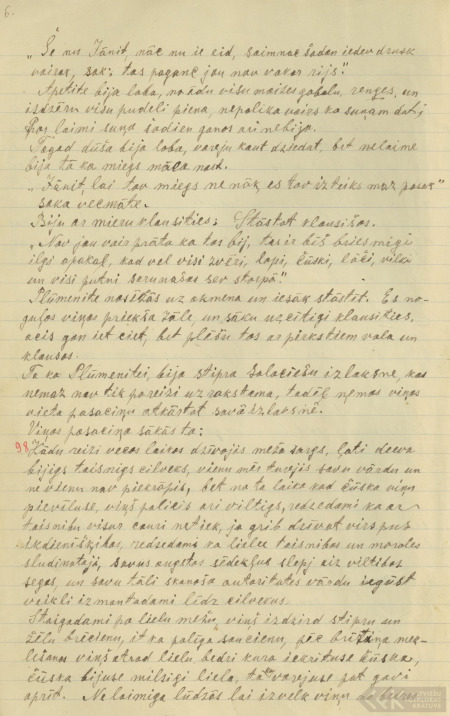 6.
"Še nu Jānit, nāc nu ie eid, saimnac šodan iedev drusk
vairak, sak: tas poganc jau nav vakar rijs."
Apetite bija laba, noēdu visu maises gabalu, renges, un
isdzēru visu pudeli piena, nepalika vairs ko sunam dot,
Par laimi suņa šodien ganos ari nebija.
Tagad dūša bija laba, varēju kaut dziedat, bet nelaime
bija tā ka miegs māca nost.
"Jānit, lai tav miegs ne nāk, es tav izteikš maz pasak"
saka vecmāte.
Biju ar mieru klausities: Stāstat klausišos.
"Nav jau vairs prāta ka tas bij, tas ir biš briesmigi
ilgi apakaļ, kad vel visi zvēri, lapi, čuski, lāči, vilki
un visi putni sarunašas sav starpā."
Plūmenite nosēdās uz akmena un iesāk stāstit. Es no-
guļos viņas priekšā zālē, un sāku uzcitigi klausities,
acis gan iet ciet, bet plēšu tos ar pirkstiem vaļa un
klausos.
Ta ka Plūmenitei, bija stipra Salaciešu izlaksne, kas
nemaz nav tik pareizi uz rakstama, tadēļ ņemos viņas
vieta pasaciņu atkārtot savā izlaksnē.
Viņas pasaciņa sākās tā:
98 Kādu reizi vecos laikos dzīvojis meža sargs, ļati dieva
bijigs taisnigs cilveks, vienu mēr turējis savu vārdu un
ne vienu nav piekrāpis, bet no ta laika kad čūska viņu
pieviluse, viņš palicis ari viltigs, redsedami ka ar
taisnibu visur cauri netiek, ja grib dzīvot virs pus
ikdienišķibas, redsedami ka lielie taisnibas un morales
sludinātaji, savus augstos sēdekļus slēpj aiz viltibas
segas, un savu tāli skanoša autoritates vārdu iegūst
veikli izmantodami līdz cilvekus.
Staigadami pa lielu mežu, viņš izdzird stipru un
žēlu brēcienu, it ka palīga saucienu, pēc brītiņa mek-
lēšanas viņš atrod lielu bedri kura iekrituse čūska,
čūska bijuse milsigi liela, tā varējuse pat gavi
aprīt. Nelaimiga lūdzās lai izvelk viņu no bedres